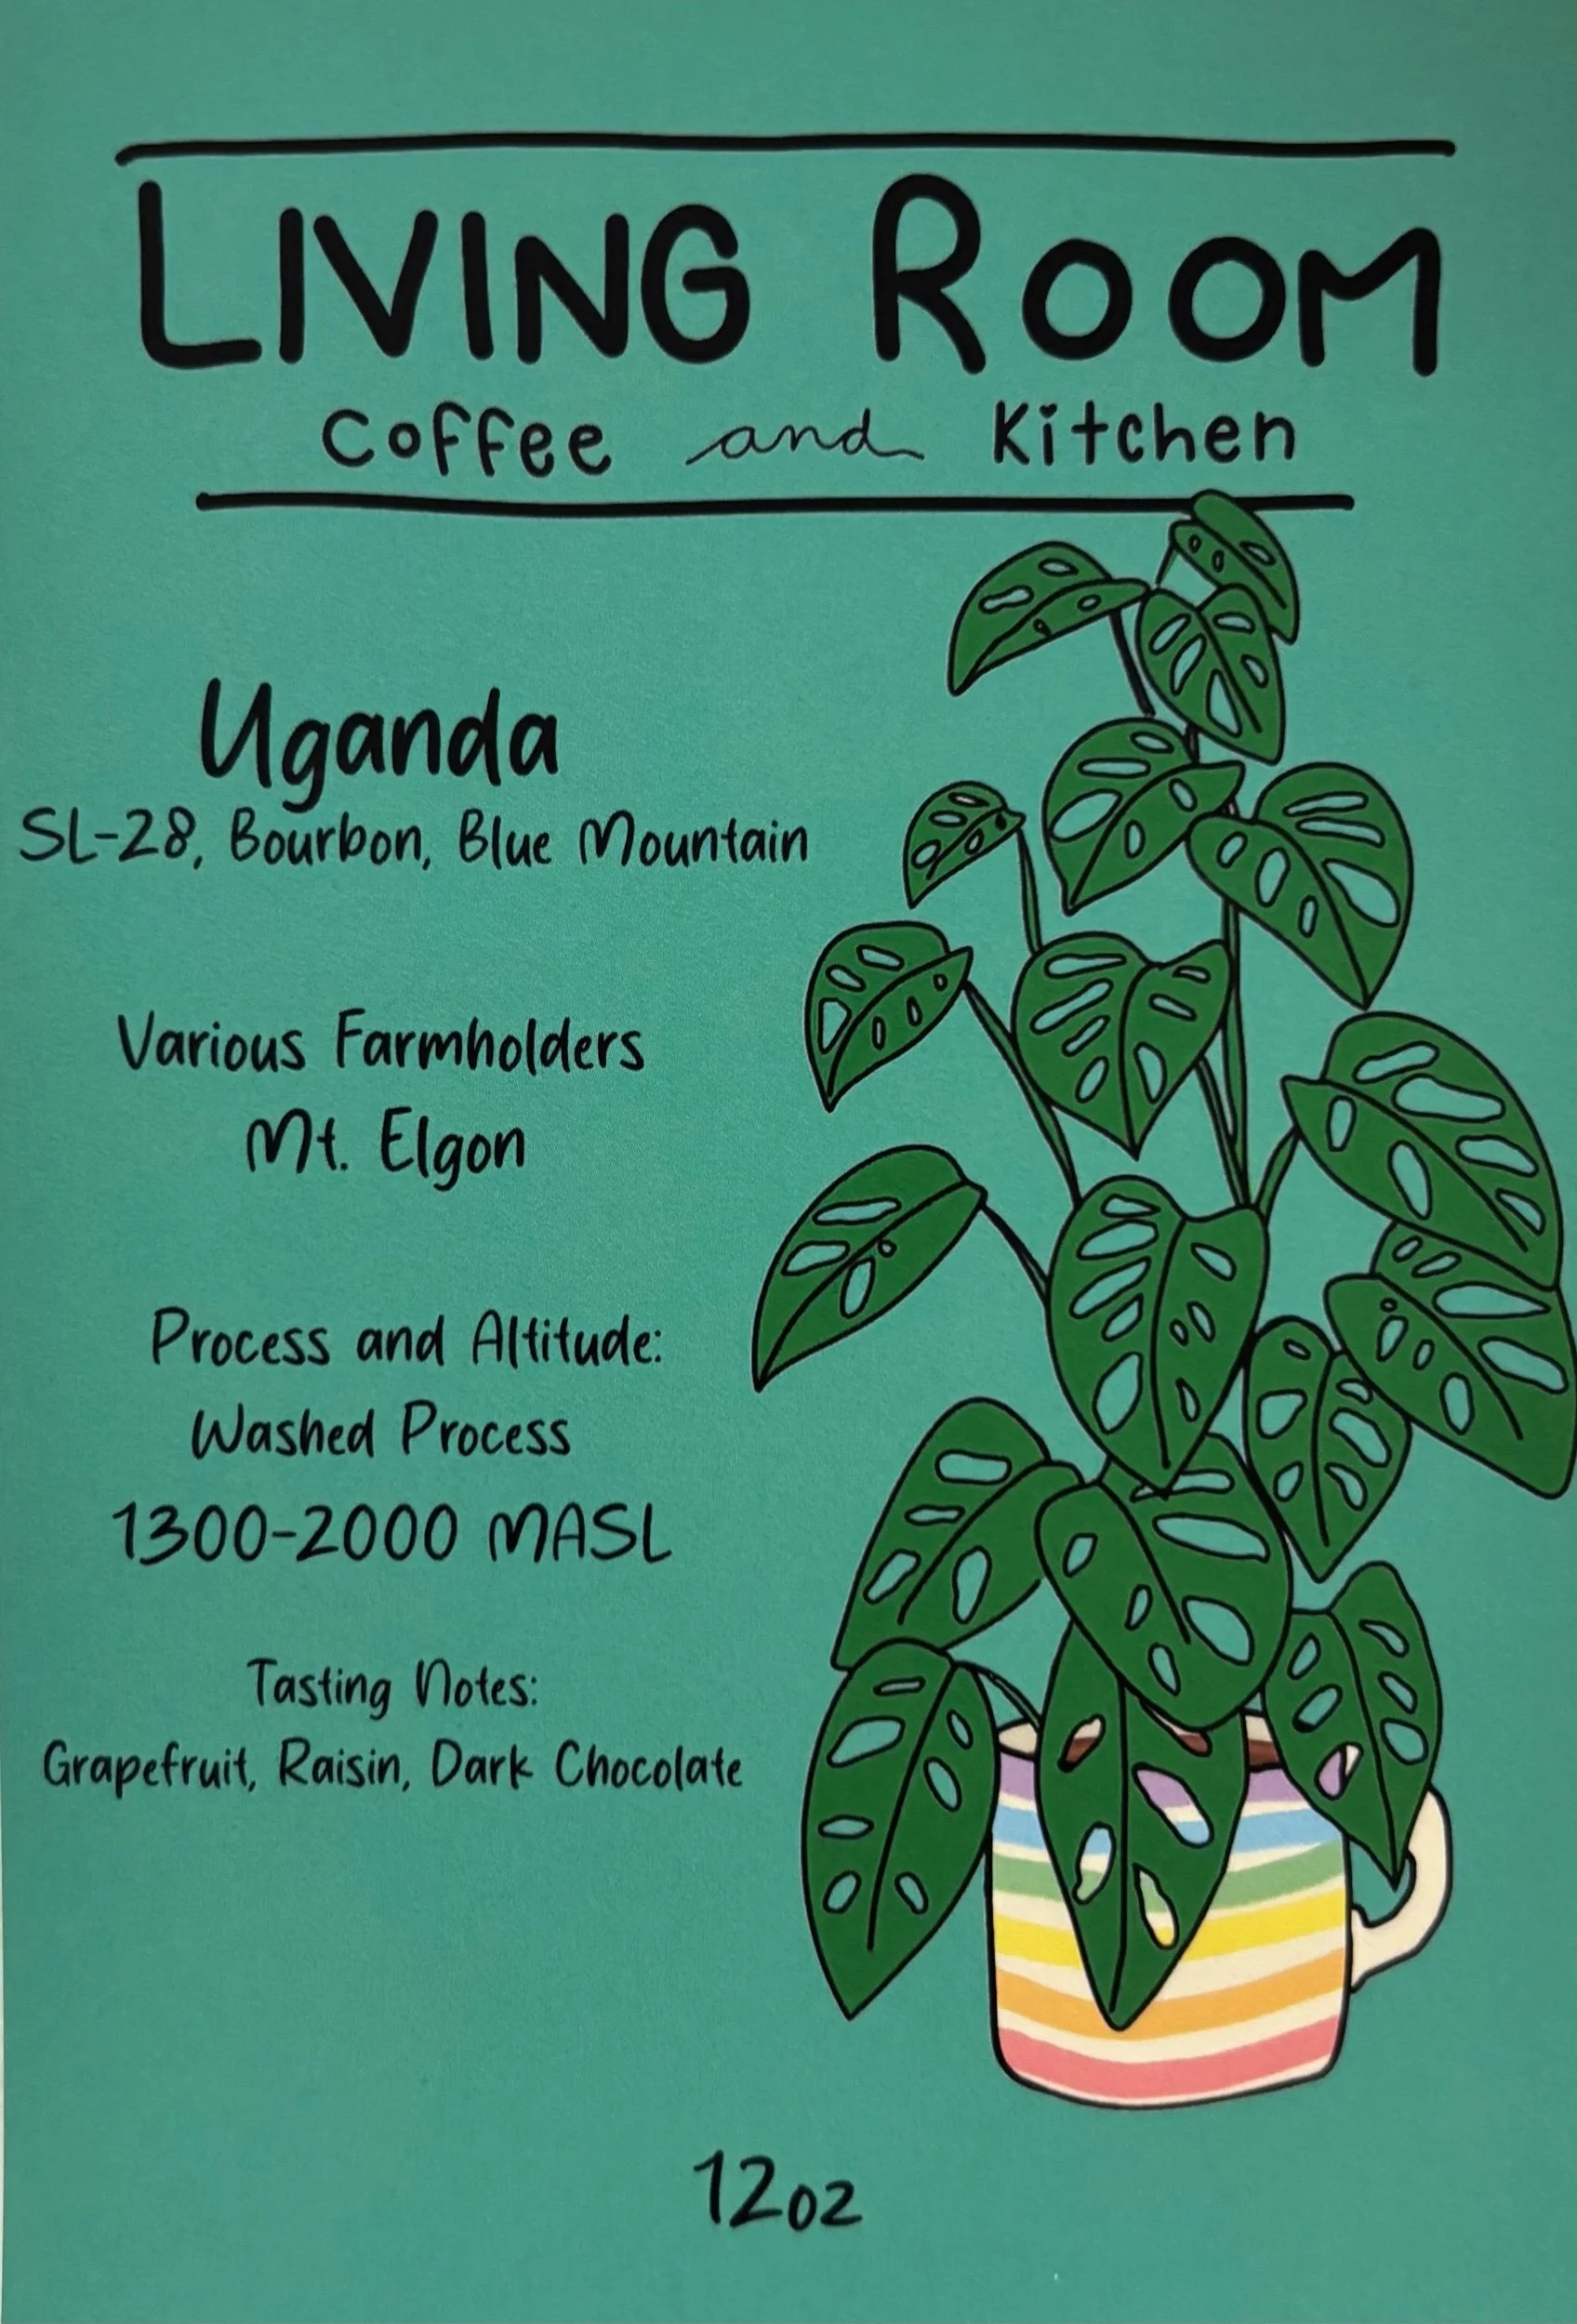 LIVING ROOM
Coffee and Kitchen
Uganda
SL-28, Bourbon, Blue Mountain
Various Farmholders
Mt. Elgon
Process and Altitude:
Washed Process
1300-2000 MASL
Tasting Notes:
Grapefruit, Raisin, Dark Chocolate
12oz